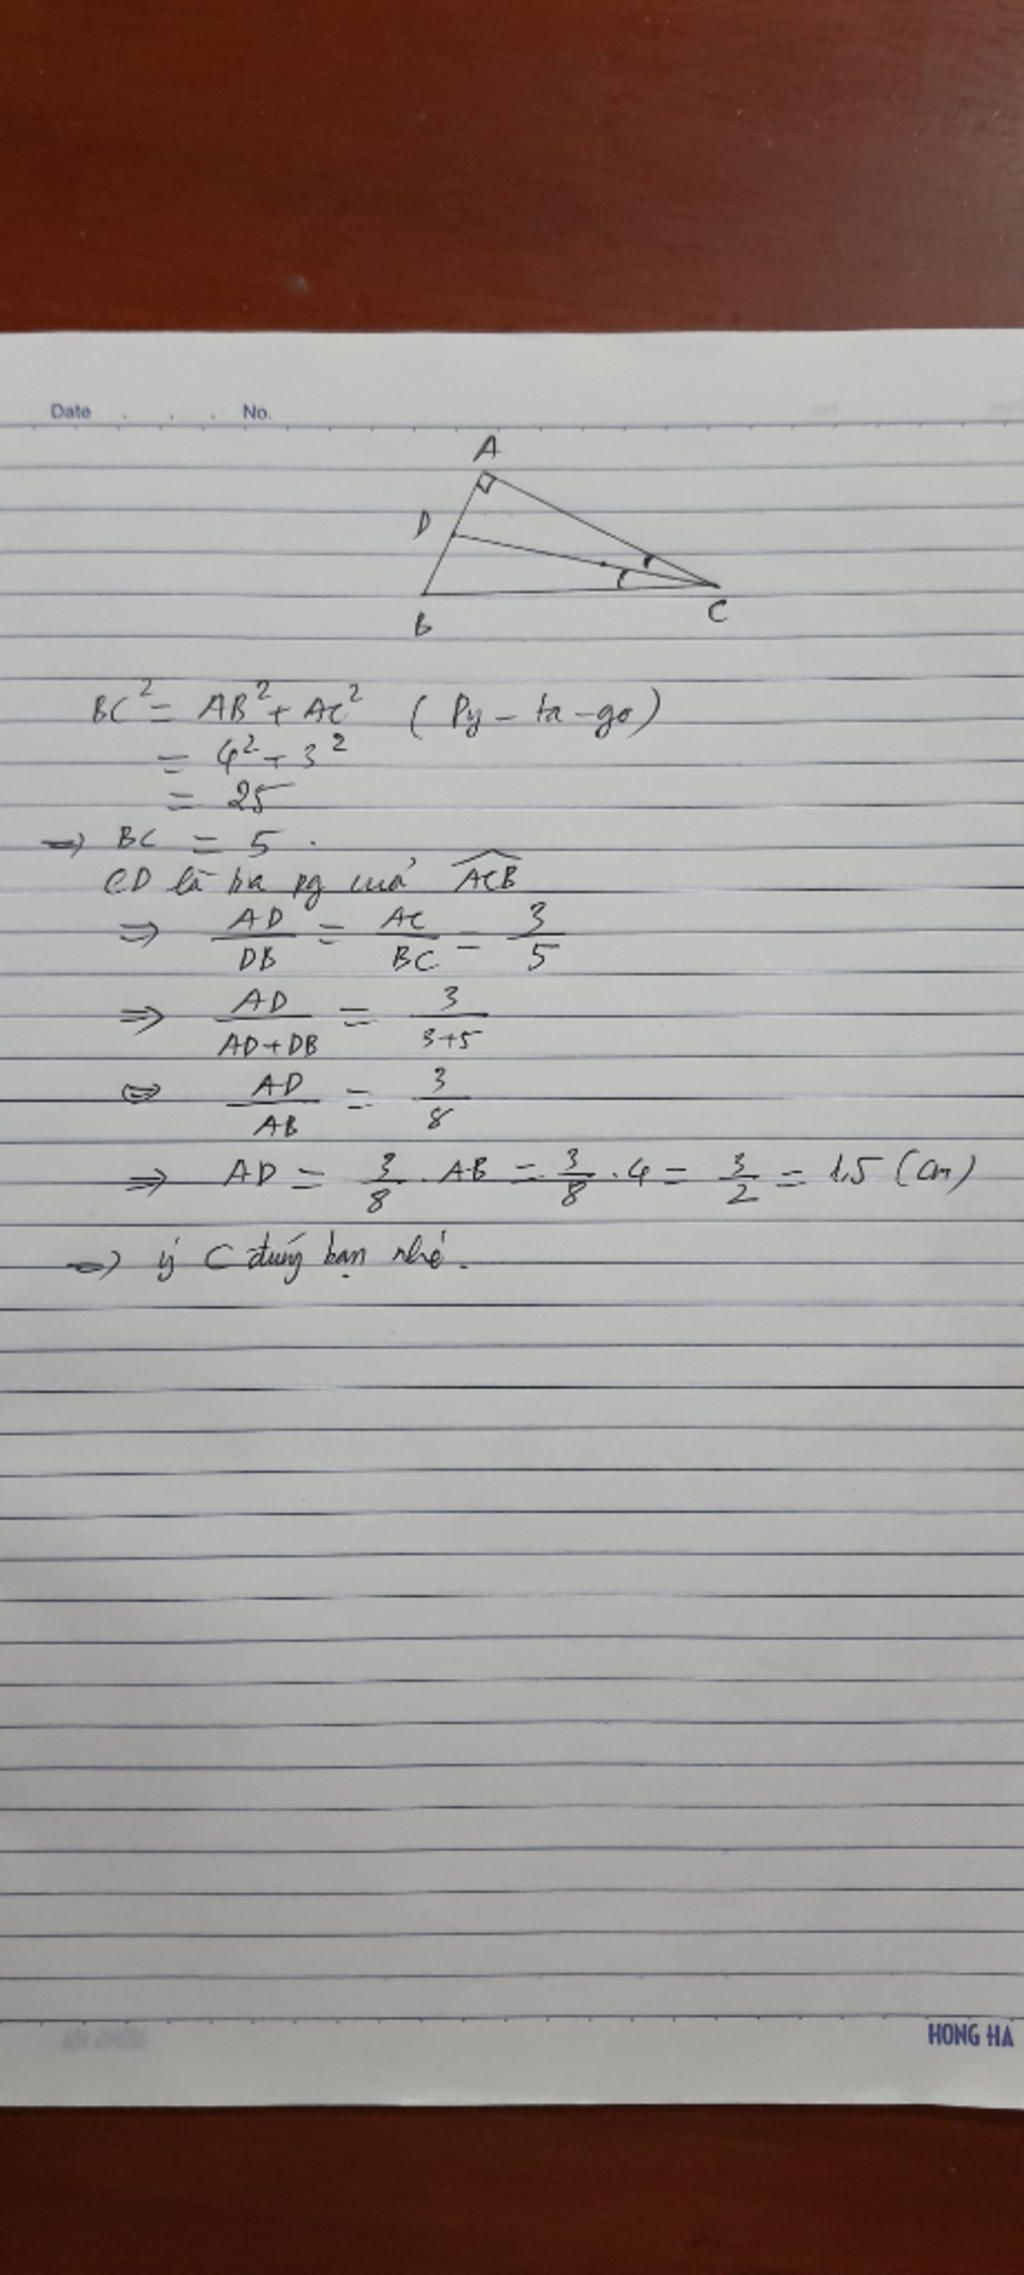 Date . . . No.
A
D
B
C
BC² = AB² + AC² ( Py - ta - go )
= 4² + 3²
= 25
=> BC = 5 .
CD là tia pg của ACB
=> AD/DB = AC/BC = 3/5
=> AD/AD+DB = 3/3+5
<=> AD/AB = 3/8
=> AD = 3/8 . AB = 3/8 . 4 = 3/2 = 1,5 (cm)
=> ý C đúng bạn nhé .
HONG HA